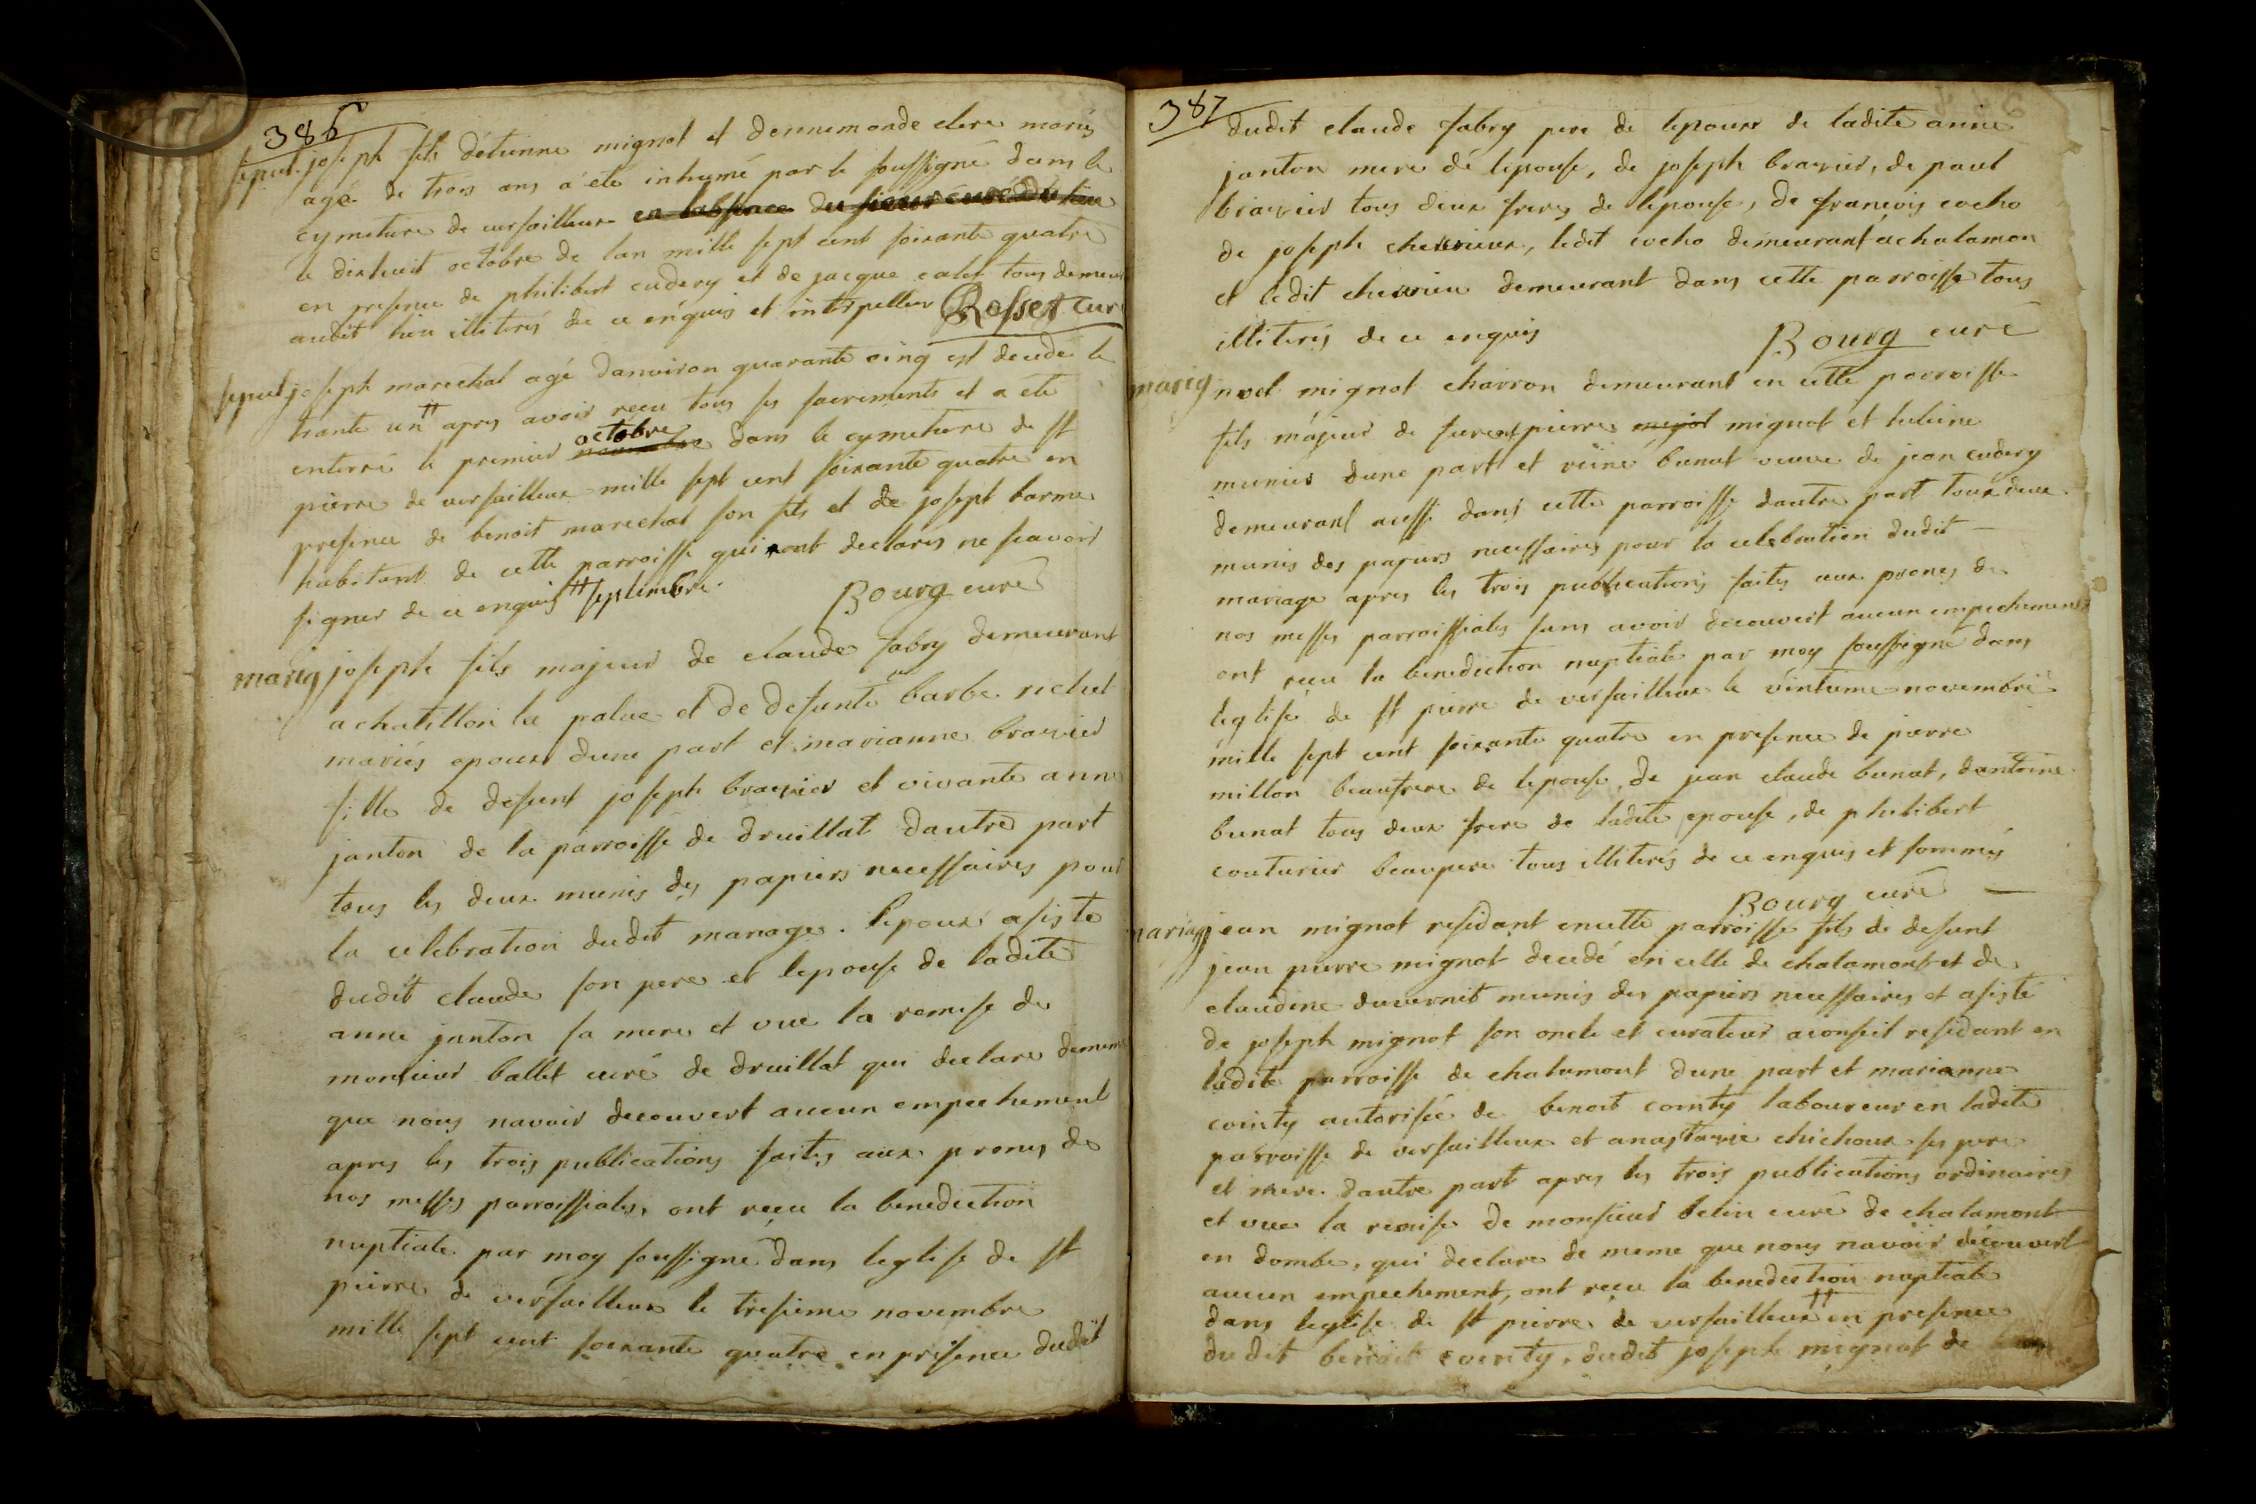 386
sepul. joseph fils détienne mignot et dennemonde clere mariés
agé de trois ans a été inhumé par le soussigné dans le
cymetiere de versailleux en labssence du sieur curé du lieu
le dixhuit octobre de lan mille sept cent soixante quatre
en presence de philibert cudery et de jacque calet tous demeur
audit lieu illiterés de ce énquis et intérpelles Rosset curé
sepul joseph marechal agé danviron quarante cinq est decedé le
trante un ++ apres avoir reçu tous ses sacrements et a été
enterré le premier novembre octobre dans le cymetiere de st
pierre de versailleux mille sept cent soixante quatre en
presence de benoit marechal son fils et de joseph barme
habitant de cette parroisse qui ont declarés ne scavoir
signer de ce enquis ++ septembre. Bourg curé
mariag joseph fils majeur de claude fabry demeurant
a chatillon la palue et de defunte barbe richet
mariés epoux dune part et marianne bravier
fille de defunt joseph bravier et vivante anne
janton de la parroisse de druillat dautre part
tous les deux munis des papiers necessaires pour
la celebration dudit mariage. lepoux asisté
dudit claude son pere et lepouse de ladite
anne janton sa mere et vue la remise de
monsieur ballet curé de druillat qui declare demême
que nous navoir decouvert aucun empechement
apres les trois publications faites aux prones de
nos messes parroissiales, ont reçu la benediction
nuptiale par moy soussigné dans leglise de st
pierre de versailleux le tresieme novembre
mille sept cent soixante quatre en présence dudit
387
dudit claude fabry pere de lepoux de ladite anne
janton mere de lepouse, de joseph bravier, de paul
bravier tous deux freres de lepouse, de françois cocho
de joseph chevrieux, ledit cocho demeurant a chalamon
et ledit chevrieu demeurant dans cette parroisse tous
illiterés de ce enquis Bourg curé
mariag noel mignot charron demeurant en cette parroisse
fils májeur de furent pierre mignot et
munier dune part et reine bunat veuve de jean cudery
demeurant aussi dans cette parroisse dautre part tous deux
munis des papiers necessaires pour la celebration dudit
mariage apres les trois publications faites aux prones de
nos messes parroissiales sans avoir decouvert aucun empechement
ont reçu la benediction nuptiale par moy soussigné dans
leglise de st pierre de versailleux le vintieme novembre
mille sept cent soixante quatre en presence de pierre
millon beaufrere de lepouse, de jean claude bunat, dantoine
bunat tous deux frere de ladite epouse, de philibert
couturier beaupere tous illiterés de ce enquis et sommés
Bourg curé
mariag jean mignot residant encette parroisse fils de defunt
jean pierre mignot decedé en celle de chalamont et de
claudine duvernit munis des papiers necessaires et asisté
de joseph mignot son oncle et curateur aconseil residant en
ladite parroisse de chalamont dune part et marianne
cointy autorisée de benoit cointy laboureur en ladite
parroisse de versailleux et anastasie chichoux ses pere
et mere dautre part apres les trois publications ordinaires
et vue la remise de monsieur belin curé de chalamont
en dombe, qui declare de meme que nous navoir découvert
aucun empechement, ont reçu la benediction nuptiale
dans leglise de st pierre de versailleux ++ en presence
dudit benoit cointy, dudit joseph mignot de